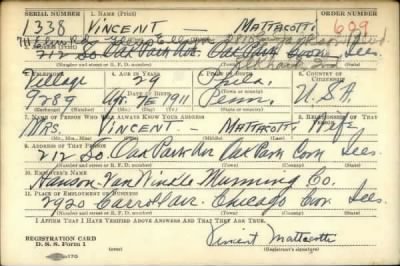 SERIAL NUMBER 1. NAME (Print) ORDER NUMBER
1338 VINCENT — MATTACOTTI 609
212 So. Oak Park Ave. Oak Park Cook Ills.
(Number and street or R. F. D. number) (Town) (County) (State)
TELEPHONE 4. AGE IN YEARS 5. PLACE OF BIRTH 6. COUNTRY OF CITIZENSHIP
Village Phila.
9089 DATE OF BIRTH 1911 Penn. U.S.A
7. NAME OF PERSON WHO WILL ALWAYS KNOW YOUR ADDRESS 8. RELATIONSHIP OF THAT PERSON
Mrs. Vincent — Mattacotti Wife
(Mr., Mrs., Miss) (First) (Middle) (Last)
9. ADDRESS OF THAT PERSON
212 So. Oak Park Ave Oak Park Cook Ills.
(Number and street or R. F. D. number) (Town) (County) (State)
10. EMPLOYER'S NAME
Hanson-Van Winkle Munning Co.
11. PLACE OF EMPLOYMENT OR BUSINESS
2920 Carroll ave. Chicago Cook Ills.
(Number and street or R. F. D. number) (Town) (County) (State)
I AFFIRM THAT I HAVE VERIFIED ABOVE ANSWERS AND THAT THEY ARE TRUE.
REGISTRATION CARD
D. S. S. Form 1
Vincent Mattacotti